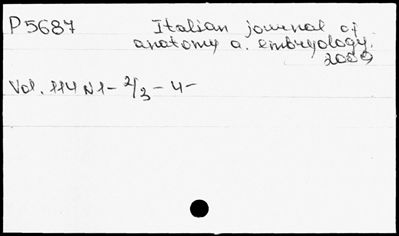 P5687 Italian journal of
anatomy a. embryology.
2009
Vol. 114 N1- 2/3 - 4-